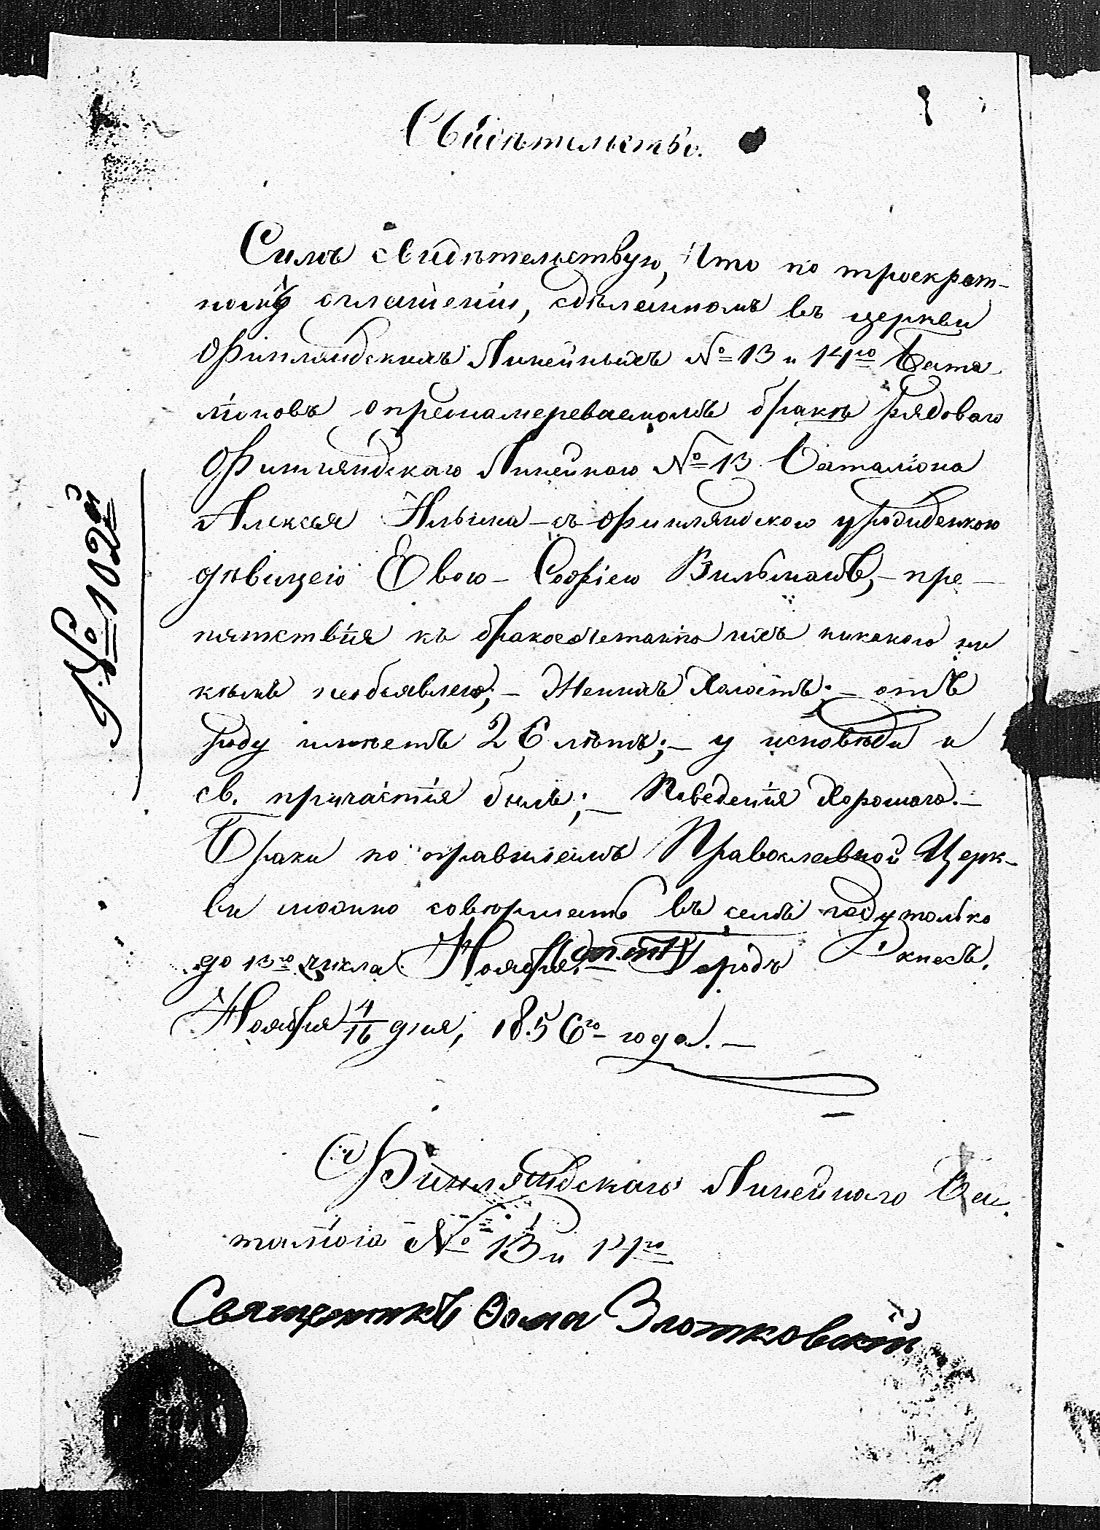 Свидѣтельство.
Симъ свидѣтельствую, что по троекрат-
ному оглашеніи, сдѣланномъ въ церкви
Финляндскихъ Линейныхъ №13 и 14го Бата-
ліоновъ о преднамереваемомъ бракѣ рядоваго
Финляндскаго Линейнаго №13 Баталіона
Алексея Ильина – съ финляндскою уродженкою
дѣвицею Евою – Софіею Вильманъ, – пре-
пятствія къ бракосочетанію ихъ никакого ни
кѣмъ необъявлено; – Женихъ Холостъ; – отъ
роду имѣетъ 26 лѣтъ; – у исповѣди и
св. причастія былъ; – Поведенія Хорошаго. –
Браки по правиламъ Православной Церк-
ви можно совершать въ семъ году только
до 13го числа Ноября. Городъ Экнесъ.
Ноября 4/16 дня, 1856го года. –
Финляндскаго Линейнаго Ба-
таліона № 13 и 14го
Священникъ Ѳома Злотковскій
№ 102й